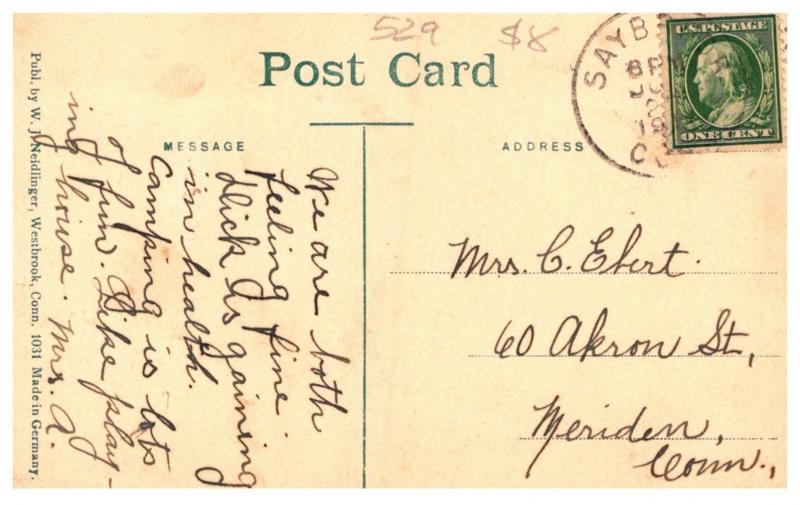 529 $8
Post Card
MESSAGE
ADDRESS
SAYB
6 PM
CO
U.S. POSTAGE
ONE CENT
We are both
feeling fine.
Dick is gaining
in health.
Camping is lots
of fun. Like play-
ing house. Mrs. A.
Mrs. C. Ebert.
60 Akron St,
Meriden,
Conn.,
Publ. by W. J. Neidlinger, Westbrook, Conn. 1031 Made in Germany.